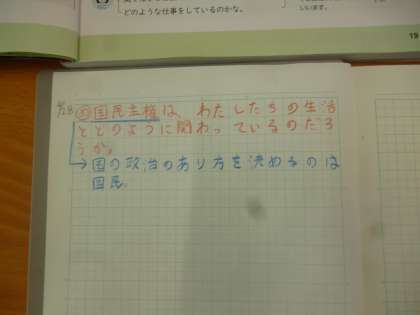 どのような仕事をしているのかな。
います。
19
4/28 め国民主権は、わたしたちの生活
とどのように関わっているのだろ
うか。
→国の政治のあり方を決めるのは
国民。